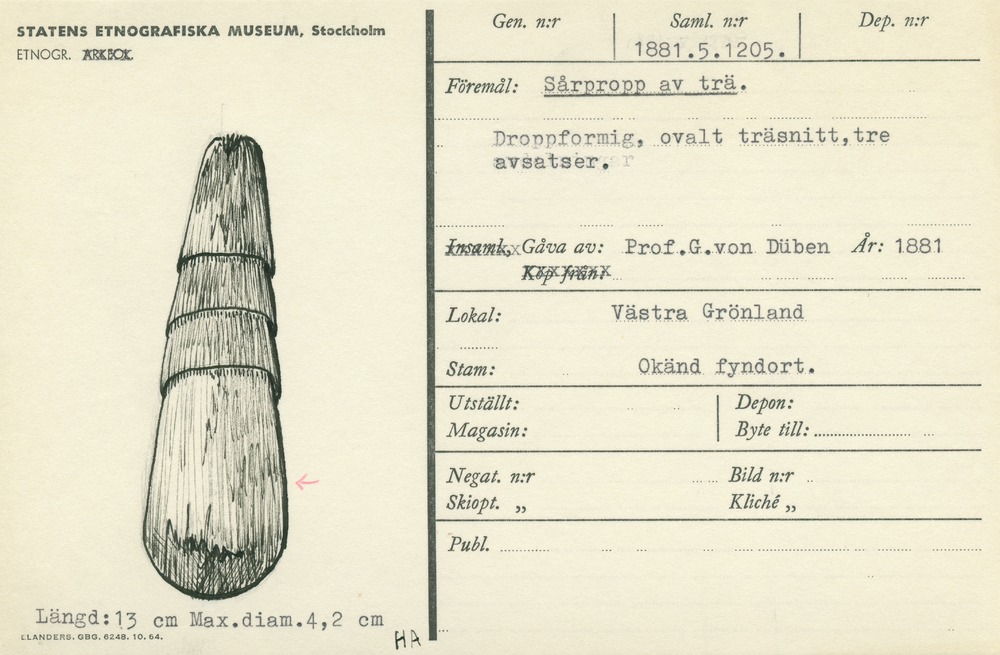 STATENS ETNOGRAFISKA MUSEUM, Stockholm
ETNOGR. ARKEOL.
Längd:13 cm Max.diam.4,2 cm
ELANDERS. GBG. 6248. 10. 64.
HA
Gen. n:r Saml. n:r Dep. n:r
1881.5.1205.
Föremål: Sårpropp av trä.
Droppformig, ovalt träsnitt,tre
avsatser.
Insaml. Gåva av: Prof.G.von Düben År: 1881
Köp från:
Lokal: Västra Grönland
Stam: Okänd fyndort.
Utställt: Depon:
Magasin: Byte till:
Negat. n:r Bild n:r
Skiopt. „ Kliché „
Publ.